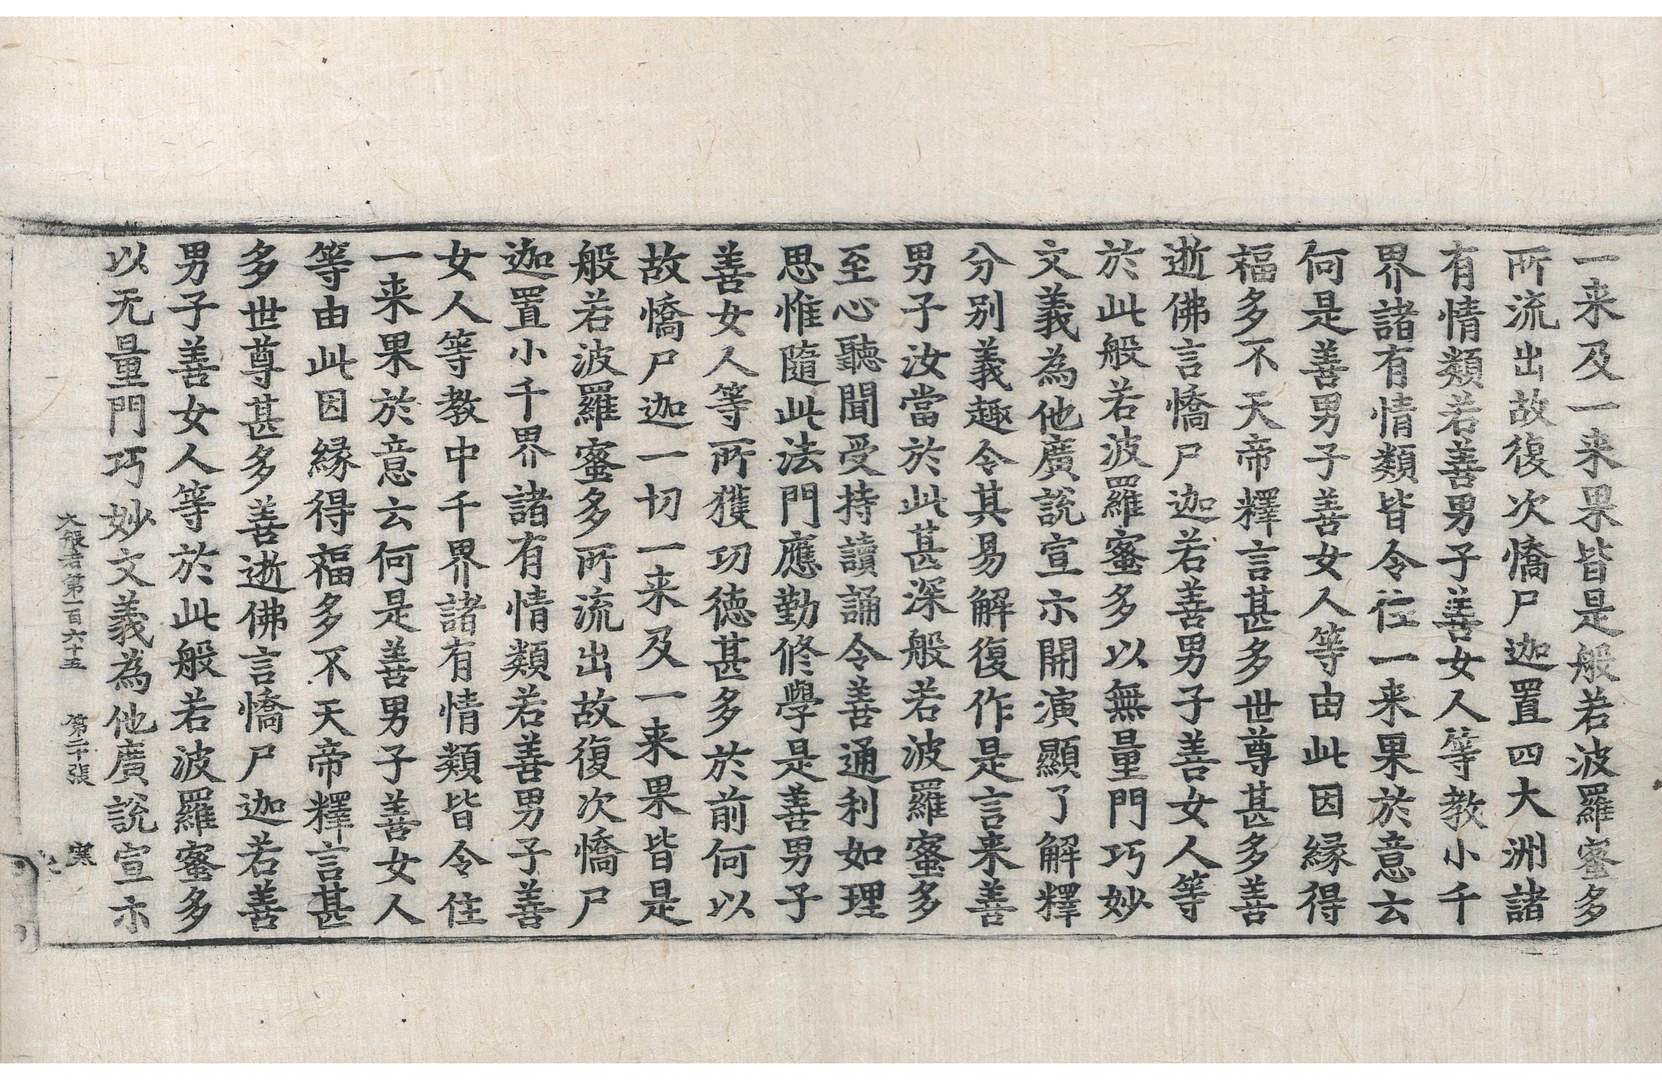 一来及一来果皆是般若波羅蜜多
所流出故復次憍尸迦置四大洲諸
有情類若善男子善女人等教小千
界諸有情類皆令住一来果於意云
何是善男子善女人等由此因縁得
福多不天帝釋言甚多世尊甚多善
逝佛言憍尸迦若善男子善女人等
於此般若波羅蜜多以無量門巧妙
文義為他廣說宣示開演顯了解釋
分别義趣令其易解復作是言来善
男子汝當於此甚深般若波羅蜜多
至心聽聞受持讀誦令善通利如理
思惟隨此法門應勤修學是善男子
善女人等所獲功德甚多於前何以
故憍尸迦一切一来及一来果皆是
般若波羅蜜多所流出故復次憍尸
迦置小千界諸有情類若善男子善
女人等教中千界諸有情類皆令住
一来果於意云何是善男子善女人
等由此因縁得福多不天帝釋言甚
多世尊甚多善逝佛言憍尸迦若善
男子善女人等於此般若波羅蜜多
以无量門巧妙文義為他廣說宣示
大般若第一百六十五 第二十張 寒